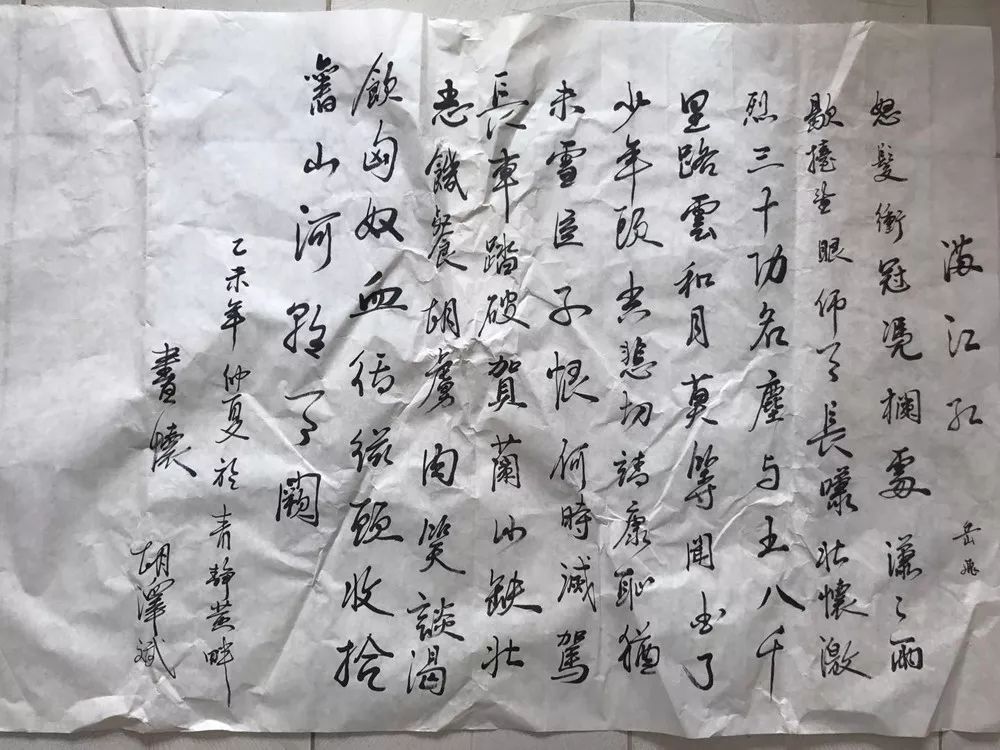 滿江紅
岳飛
怒髮衝冠凴欄處瀟々雨
歇擡望眼仰天長嘯壯懷激
烈三十功名塵与土八千
里路雲和月莫等閒白了
少年頭空悲切靖康恥猶
未雪臣子恨何時滅駕
長車踏破賀蘭山缺壯
志饑餐胡虜肉笑談渴
飲匈奴血待從頭收拾
舊山河朝天闕
乙未年仲夏於青靜黃畔
書懷
胡澤斌